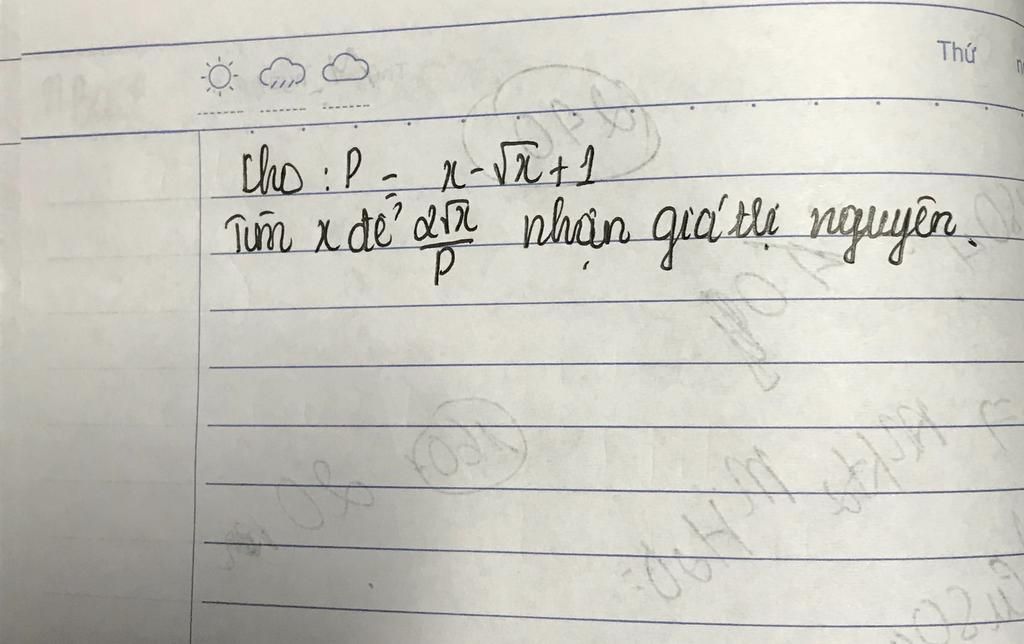 Thứ
Cho : P = x - √x + 1
Tìm x để 2√x/P nhận giá trị nguyên.